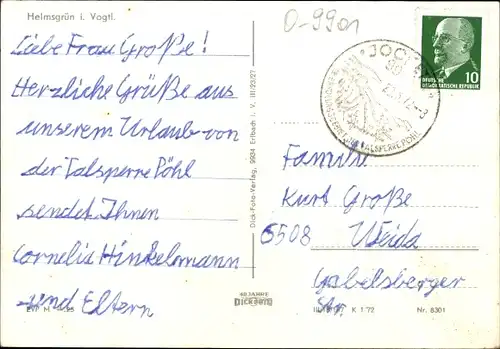 Helmsgrün i. Vogtl.
Liebe Frau Große!
Herzliche Grüße aus
unserem Urlaub von
der Talsperre Pöhl
sendet Ihnen
Cornelia Hinkelmann
und Eltern
EVP M
40 JAHRE
DICK FOTO
Dick-Foto-Verlag, 9934 Erlbach i. V.
0-9901
TALSPERRE PÖHL
10
DEUTSCHE
DEMOKRATISCHE REPUBLIK
Familie
Kurt Große
6508 Weida
Gabelsberger
Str.
K 1 72
Nr. 8301